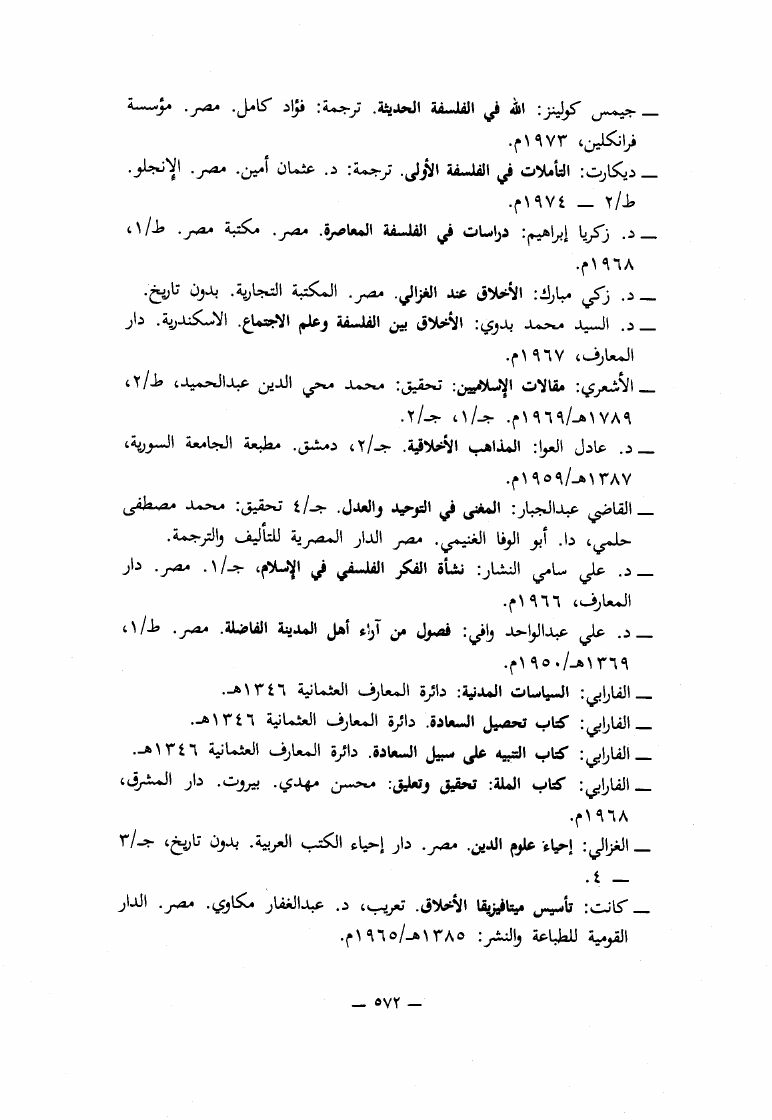 — جيمس كولينز: الله في الفلسفة الحديثة. ترجمة: فؤاد كامل. مصر. مؤسسة
فرانكلين، ١٩٧٣م.
— ديكارت: التأملات في الفلسفة الأولى. ترجمة: د. عثمان أمين. مصر. الإنجلو.
ط/٢ — ١٩٧٤م.
— د. زكريا إبراهيم: دراسات في الفلسفة المعاصرة. مصر. مكتبة مصر. ط/١،
١٩٦٨م.
— د. زكي مبارك: الأخلاق عند الغزالي. مصر. المكتبة التجارية. بدون تاريخ.
— د. السيد محمد بدوي: الأخلاق بين الفلسفة وعلم الاجتماع. الاسكندرية. دار
المعارف، ١٩٦٧م.
— الأشعري: مقالات الإسلاميين: تحقيق: محمد محي الدين عبدالحميد، ط/٢،
١٧٨٩هـ/١٩٦٩م. جـ/١، جـ/٢.
— د. عادل العوا: المذاهب الأخلاقية. جـ/٢، دمشق. مطبعة الجامعة السورية،
١٣٨٧هـ/١٩٥٩م.
— القاضي عبدالجبار: المغنى في التوحيد والعدل. جـ/٤ تحقيق: محمد مصطفى
حلمي، دا. أبو الوفا الغنيمي. مصر الدار المصرية للتأليف والترجمة.
— د. علي سامي النشار: نشأة الفكر الفلسفي في الإسلام، جـ/١. مصر. دار
المعارف، ١٩٦٦م.
— د. علي عبدالواحد وافي: فصول من آراء أهل المدينة الفاضلة. مصر. ط/١،
١٣٦٩هـ/١٩٥٠م.
— الفارابي: السياسات المدنية: دائرة المعارف العثمانية ١٣٤٦هـ.
— الفارابي: كتاب تحصيل السعادة. دائرة المعارف العثمانية ١٣٤٦هـ.
— الفارابي: كتاب التنبيه على سبيل السعادة. دائرة المعارف العثمانية ١٣٤٦هـ.
— الفارابي: كتاب الملة: تحقيق وتعليق: محسن مهدي. بيروت. دار المشرق،
١٩٦٨م.
— الغزالي: إحياء علوم الدين. مصر. دار إحياء الكتب العربية. بدون تاريخ، جـ/٣
— ٤.
— كانت: تأسيس ميتافيزيقا الأخلاق. تعريب، د. عبدالغفار مكاوي. مصر. الدار
القومية للطباعة والنشر: ١٣٨٥هـ/١٩٦٥م.
— ٥٧٢ —